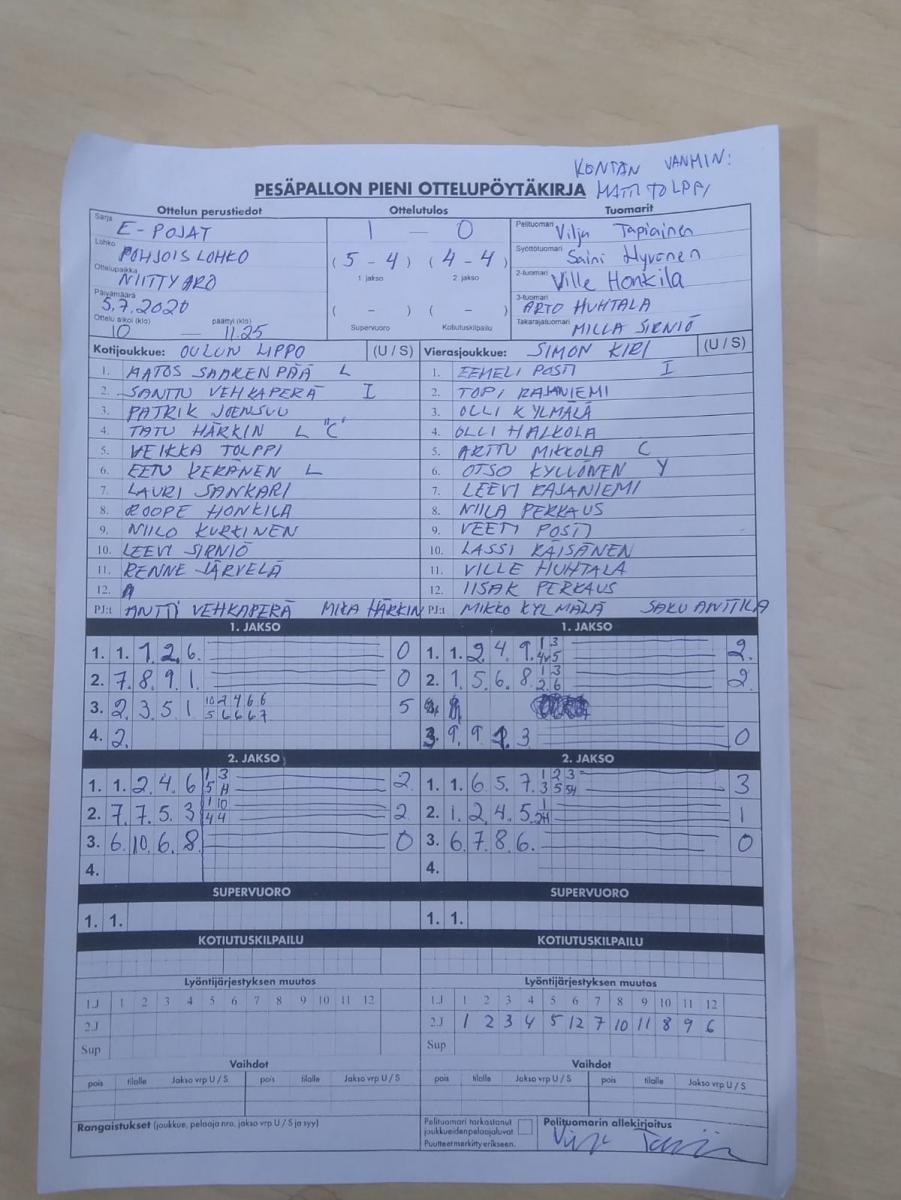 KONTAN VANHIN:
MATTI TOLPPI
PESÄPALLON PIENI OTTELUPÖYTÄKIRJA
Ottelun perustiedot Ottelutulos Tuomarit
Sarja E-POJAT 1 — 0 Pelituomari Vilja Tapiainen
Lohko POHJOISLOHKO (5-4) (4-4) Syöttötuomari Saini Hyvönen
1. jakso 2. jakso
Ottelupaikka NIITTYARO 2-tuomari Ville Honkila
Päivämäärä 5.7.2020 ( - ) ( - ) 3-tuomari ARTO HUHTALA
Ottelu alkoi (klo) 10 — päättyi (klo) 11.25 Supervuoro Kotiutuskilpailu Takarajatuomari MILLA SIRNIÖ
Kotijoukkue: OULUN LIPPO (U / S) Vierasjoukkue: SIMON KIRI (U / S)
1. AATOS SAARENPÄÄ L 1. EEMELI POSTI I
2. SANTTU VEHKAPERÄ I 2. TOPI RAJANIEMI
3. PATRIK JOENSUU 3. OLLI KYLMÄLÄ
4. TATU HÄRKIN L "C" 4. OLLI HALKOLA
5. VEIKKA TOLPPI 5. ARTTU MIKKOLA C
6. EETU KERÄNEN L 6. OTSO KYLLÖNEN Y
7. LAURI SANKARI 7. LEEVI RAJANIEMI
8. ROOPE HONKILA 8. NIILA PERKAUS
9. NIILO KURKINEN 9. VEETI POSTI
10. LEEVI SIRNIÖ 10. LASSI RÄISÄNEN
11. RENNE JÄRVELÄ 11. VILLE HUHTALA
12. 12. IISAK PERKAUS
PJ:t ANTTI VEHKAPERÄ MIKA HÄRKIN PJ:t MIKKO KYLMÄLÄ SAKU ANTTILA
1. JAKSO 1. JAKSO
1. 1. 1. 2. 6. 0 1. 1. 2. 4. 9. 1 3 4 5 2.
2. 7. 8. 9. 1. 0 2. 1. 5. 6. 8. 1 3 2 6 2.
3. 2. 3. 5. 1 10 2 4 6 6 5 6 6 6 7 5
4. 2. 3. 9. 9. 3 0
2. JAKSO 2. JAKSO
1. 1. 2. 4. 6 1 3 5 H 2. 1. 1. 6. 5. 7. 1 2 3 3 5 5H 3
2. 7. 7. 5. 3 1 10 4 4 2. 2. 1. 2. 4. 5. 1 2H 1
3. 6. 10. 6. 8. 0 3. 6. 7. 8. 6. 0
4. 4.
SUPERVUORO SUPERVUORO
1. 1. 1. 1.
KOTIUTUSKILPAILU KOTIUTUSKILPAILU
Lyöntijärjestyksen muutos Lyöntijärjestyksen muutos
1.J 1 2 3 4 5 6 7 8 9 10 11 12 1.J 1 2 3 4 5 6 7 8 9 10 11 12
2.J 2.J 1 2 3 4 5 12 7 10 11 8 9 6
Sup Sup
Vaihdot Vaihdot
pois tilalle Jakso vrp U / S pois tilalle Jakso vrp U / S pois tilalle Jakso vrp U / S pois tilalle Jakso vrp U / S
Rangaistukset (joukkue, pelaaja nro, jakso vrp U / S ja syy) Pelituomari tarkastanut Pelituomarin allekirjoitus
joukkueiden pelaajaluvat
Puutteet merkitty erikseen.